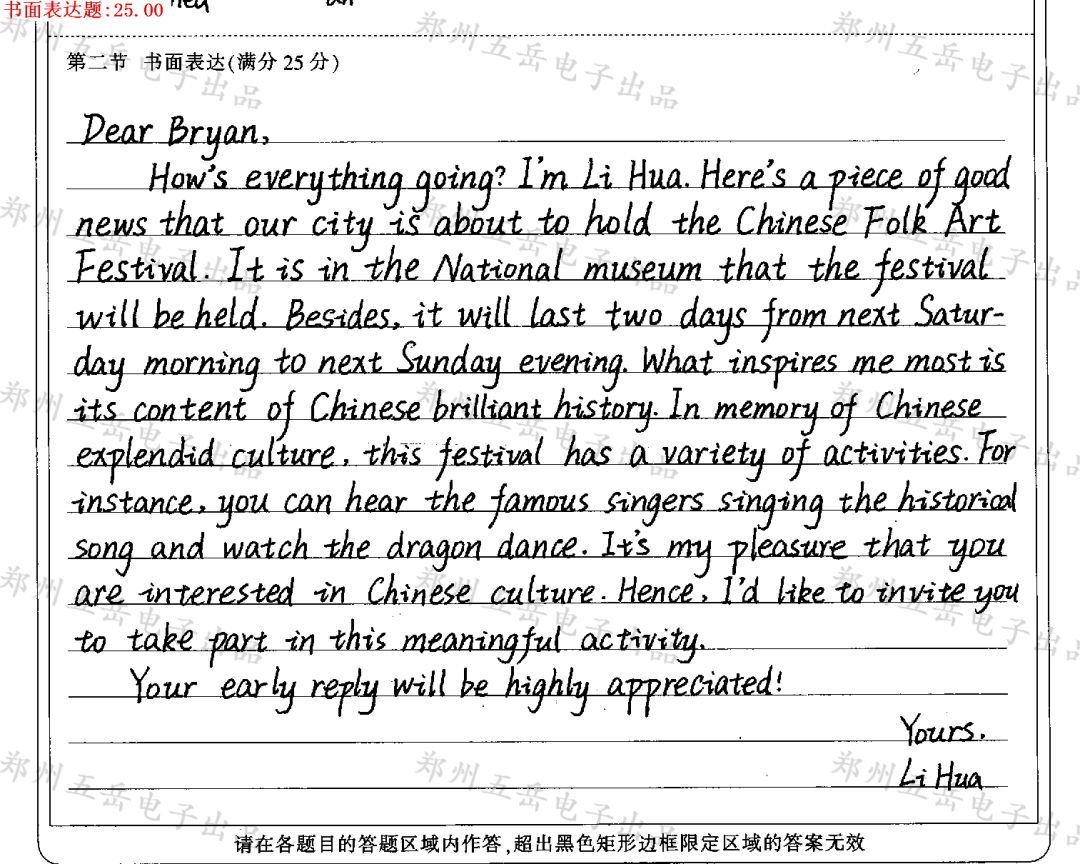 书面表达题:25.00
第二节 书面表达(满分 25 分)
Dear Bryan,
How's everything going? I'm Li Hua. Here's a piece of good
news that our city is about to hold the Chinese Folk Art
Festival. It is in the National museum that the festival
will be held. Besides, it will last two days from next Satur-
day morning to next Sunday evening. What inspires me most is
its content of Chinese brilliant history. In memory of Chinese
explendid culture, this festival has a variety of activities. For
instance, you can hear the famous singers singing the historical
song and watch the dragon dance. It's my pleasure that you
are interested in Chinese culture. Hence, I'd like to invite you
to take part in this meaningful activity.
Your early reply will be highly appreciated!
Yours,
Li Hua
请在各题目的答题区域内作答,超出黑色矩形边框限定区域的答案无效
郑州五岳电子出品